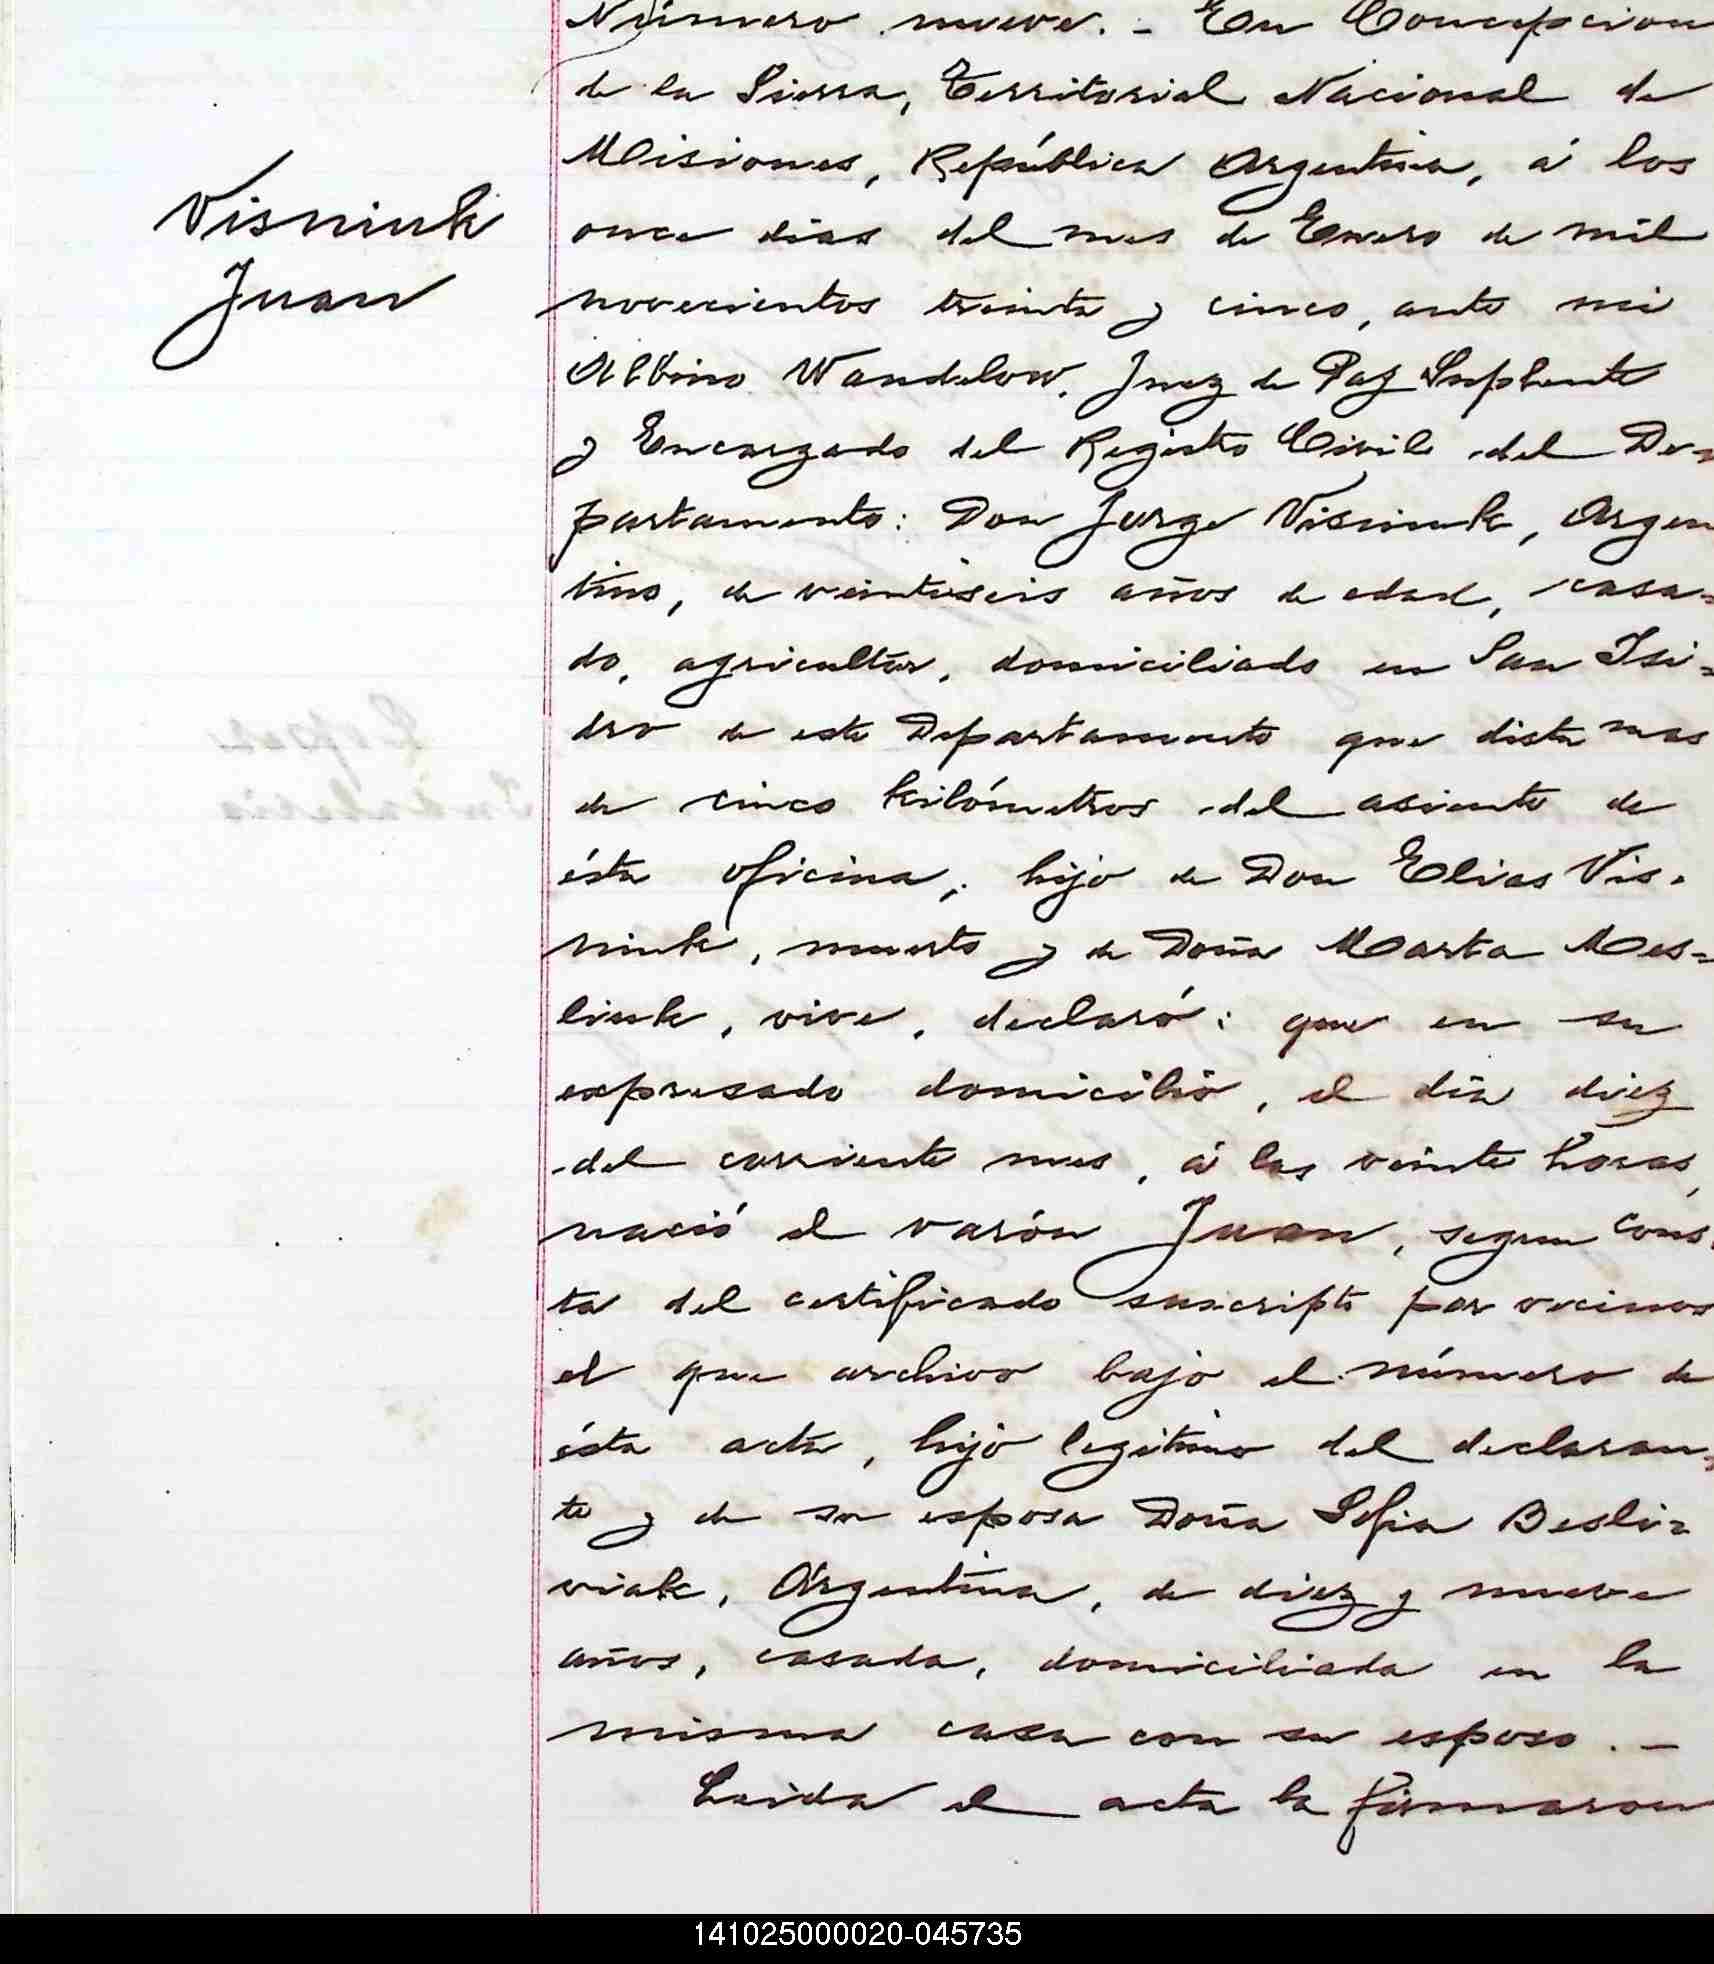 Número nueve. - En Concepcion
de la Sierra, Territorial Nacional de
Misiones, República Argentina, á los
Visniuk
once dias del mes de Enero de mil
Juan
novecientos treinta y cinco, ante mi
Albino Wandelow, Juez de Paz Suplente
y Encargado del Registro Civil del De-
partamento: Don Jorge Visniuk, Argen
tino, de veintiseis años de edad, casa-
do, agricultor, domiciliado en San Isi-
dro de este Departamento que dista mas
de cinco kilómetros del asiento de
ésta oficina; hijo de Don Elias Vis-
niuk, muerto y de Doña Marta Mes-
liuk, vive, declaró: que en su
expresado domicilio, el dia diez
del corriente mes, á las veinte horas,
nació el varón Juan, segun cons-
ta del certificado suscripto por vecinos
el que archivo bajo el número de
ésta acta, hijo legitimo del declaran-
te y de su esposa Doña Sofia Beslu-
viak, Argentina, de diez y nueve
años, casada, domiciliada en la
misma casa con su esposo. -
Leida el acta la firmaron
141025000020-045735